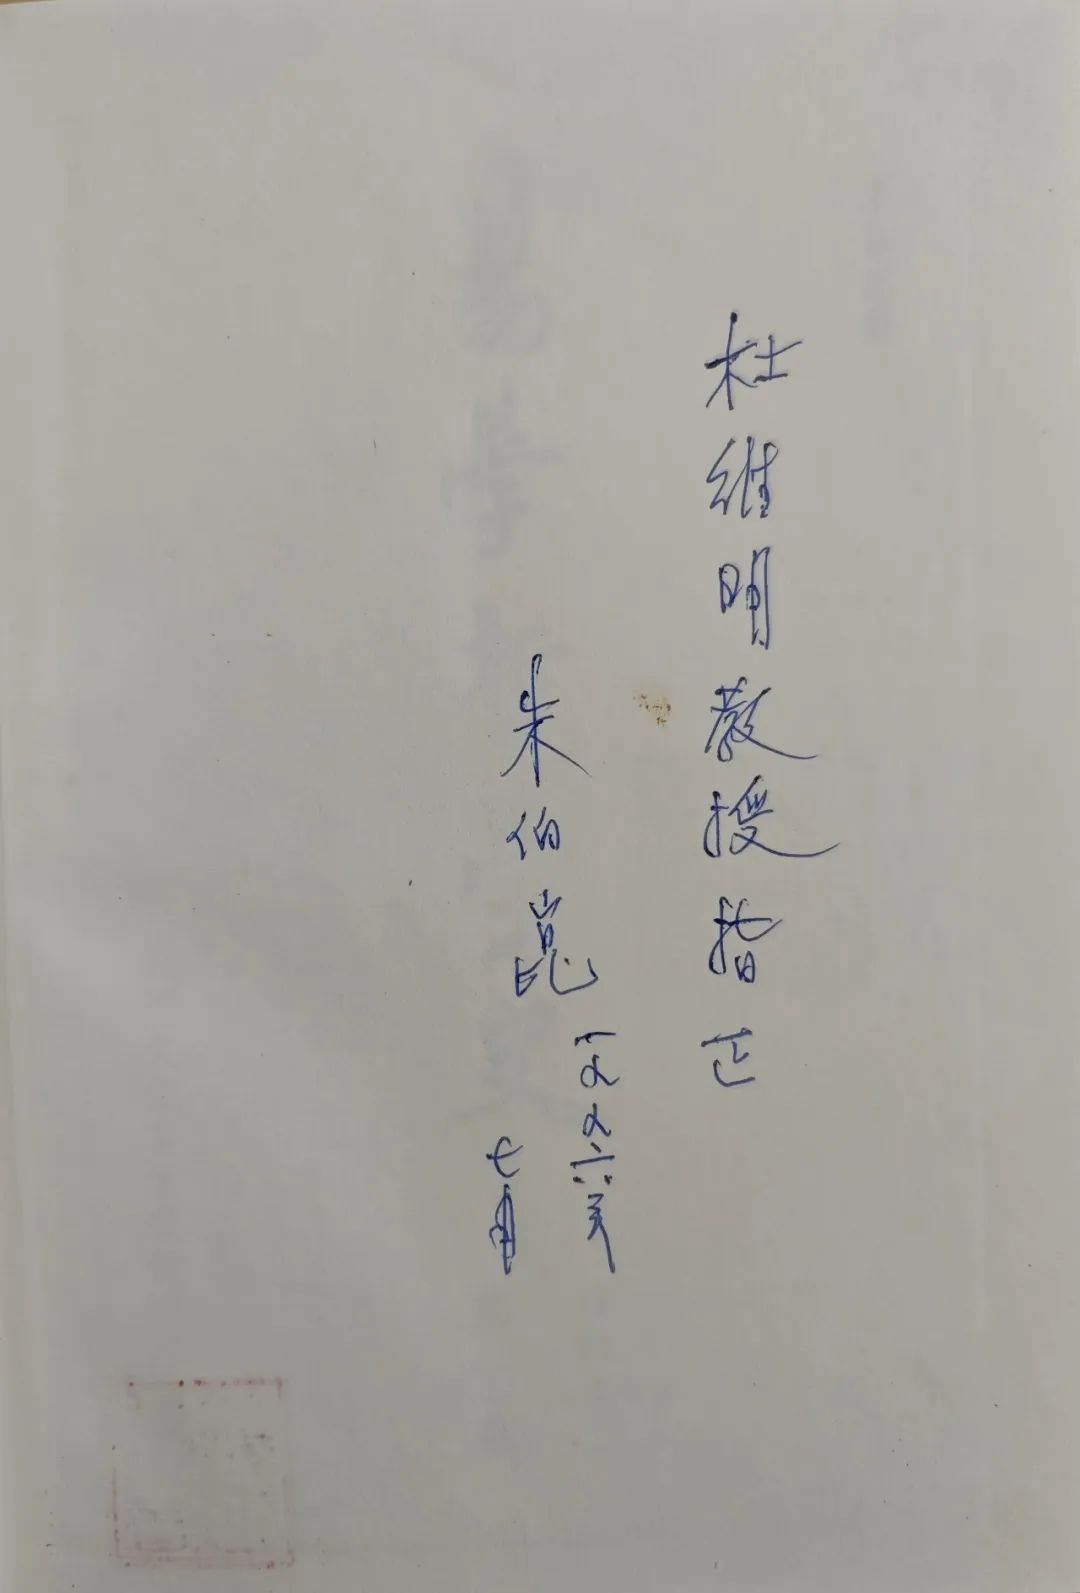 杜维明教授指正
朱伯崑
一九九六年
七